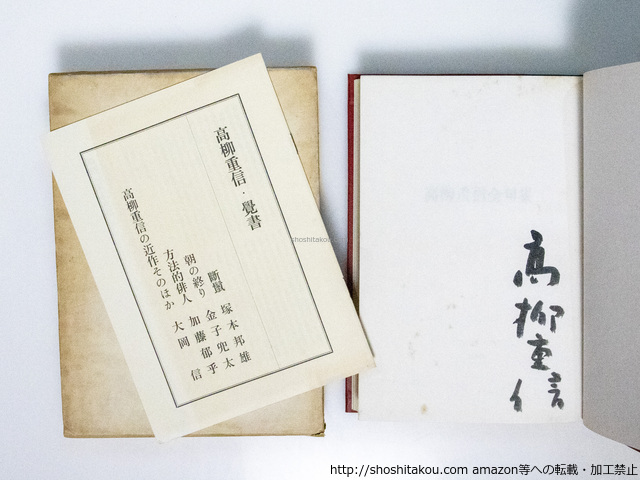 高柳重信・覺書
塚本邦雄
朝の終り 金子兜太
方法的俳人 加藤郁乎
高柳重信の近作そのほか 大岡 信
高柳重信
http://shoshitakou.com amazon等への転載・加工禁止